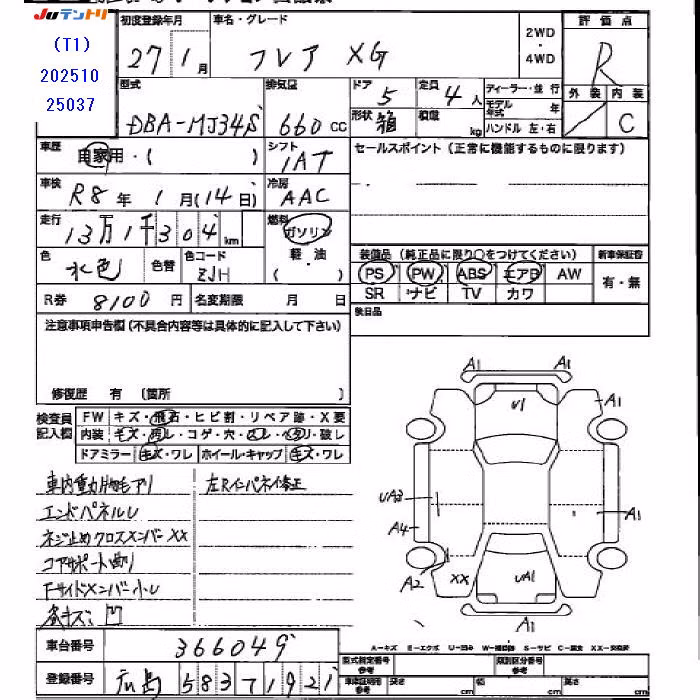 Juテントリ
(T1)
202510
25037
初度登録年月
車名・グレード
27 1月
フレア XG
2WD
・
4WD
評価点
R
外装 内装
C
型式
DBA-MJ34S
排気量
660 CC
ドア 5
形状 箱
定員 4人
積載 kg
ディーラー・並行
モデル年式 年
ハンドル 左・右
車歴
自家用・( )
シフト
IAT
セールスポイント (正常に機能するものに限ります)
車検
R8年 1月(14日)
冷房
AAC
走行
13万1千304km
燃料
ガソリン
軽・油
( )
色
水色
色替
色コード
ZJH
装備品 (純正品に限り○をつけてください)
新車保証書
PS PW ABS エアB AW
有・無
SR ナビ TV カワ
R券 8100円
名変期限 月 日
後日品
注意事項申告欄 (不具合内容等は具体的に記入して下さい)
修復歴 有 〔箇所 〕
検査員記入欄
FW キズ・飛石・ヒビ割・リペア跡・X要
内装 キズ・汚レ・コゲ・穴・スレ・ヘタリ・破レ
ドアミラー キズ・ワレ ホイール・キャップ キズ・ワレ
左Rインパネイ修正
エンドパネルU
ネジ止めクロスメンバーXX
コアサポート曲り
Fサイドメンバー小U
各キズ 凹
A1
A1
U1
A1
UA3
A4
A1
A2
XX
UA1
A1
A1
A-キズ E-エクボ U-凹み W-補修跡 S-サビ C-腐食 XX-交換済
車台番号 366049
型式指定番号 参考
類別区分番号 参考
登録番号 広島 583 71921
車検証期間 参考 長さ cm 幅 cm 高さ cm